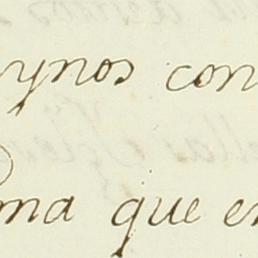 ynos con
ma que en